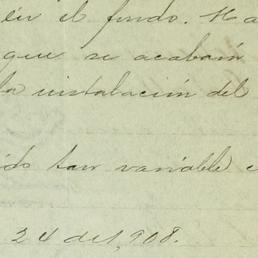 en el fondo. Ha
que se acabará
la instalación del
ido tan variable
24 del, 908.